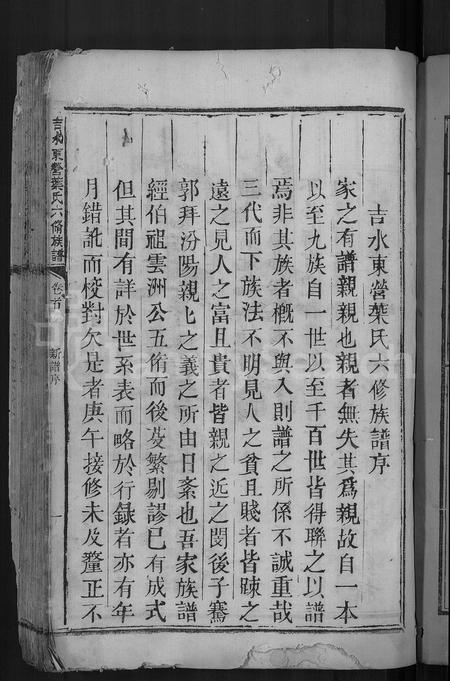 吉水東營葉氏六修族譜序
家之有譜親親也親者無失其爲親故自一本
以至九族自一世以至千百世皆得聯之以譜
焉非其族者概不與入則譜之所係不誠重哉
三代而下族法不明見人之貧且賤者皆踈之
遠之見人之富且貴者皆親之近之閔後子騫
郭拜汾陽親匕之義之所由日紊也吾家族譜
經伯祖雲洲公五脩而後芟繁剔謬已有成式
但其間有詳於世系表而略於行録者亦有年
月錯訛而校對欠是者庚午接修未及釐正不
吉水東營葉氏六脩族譜
卷首
新譜序
一